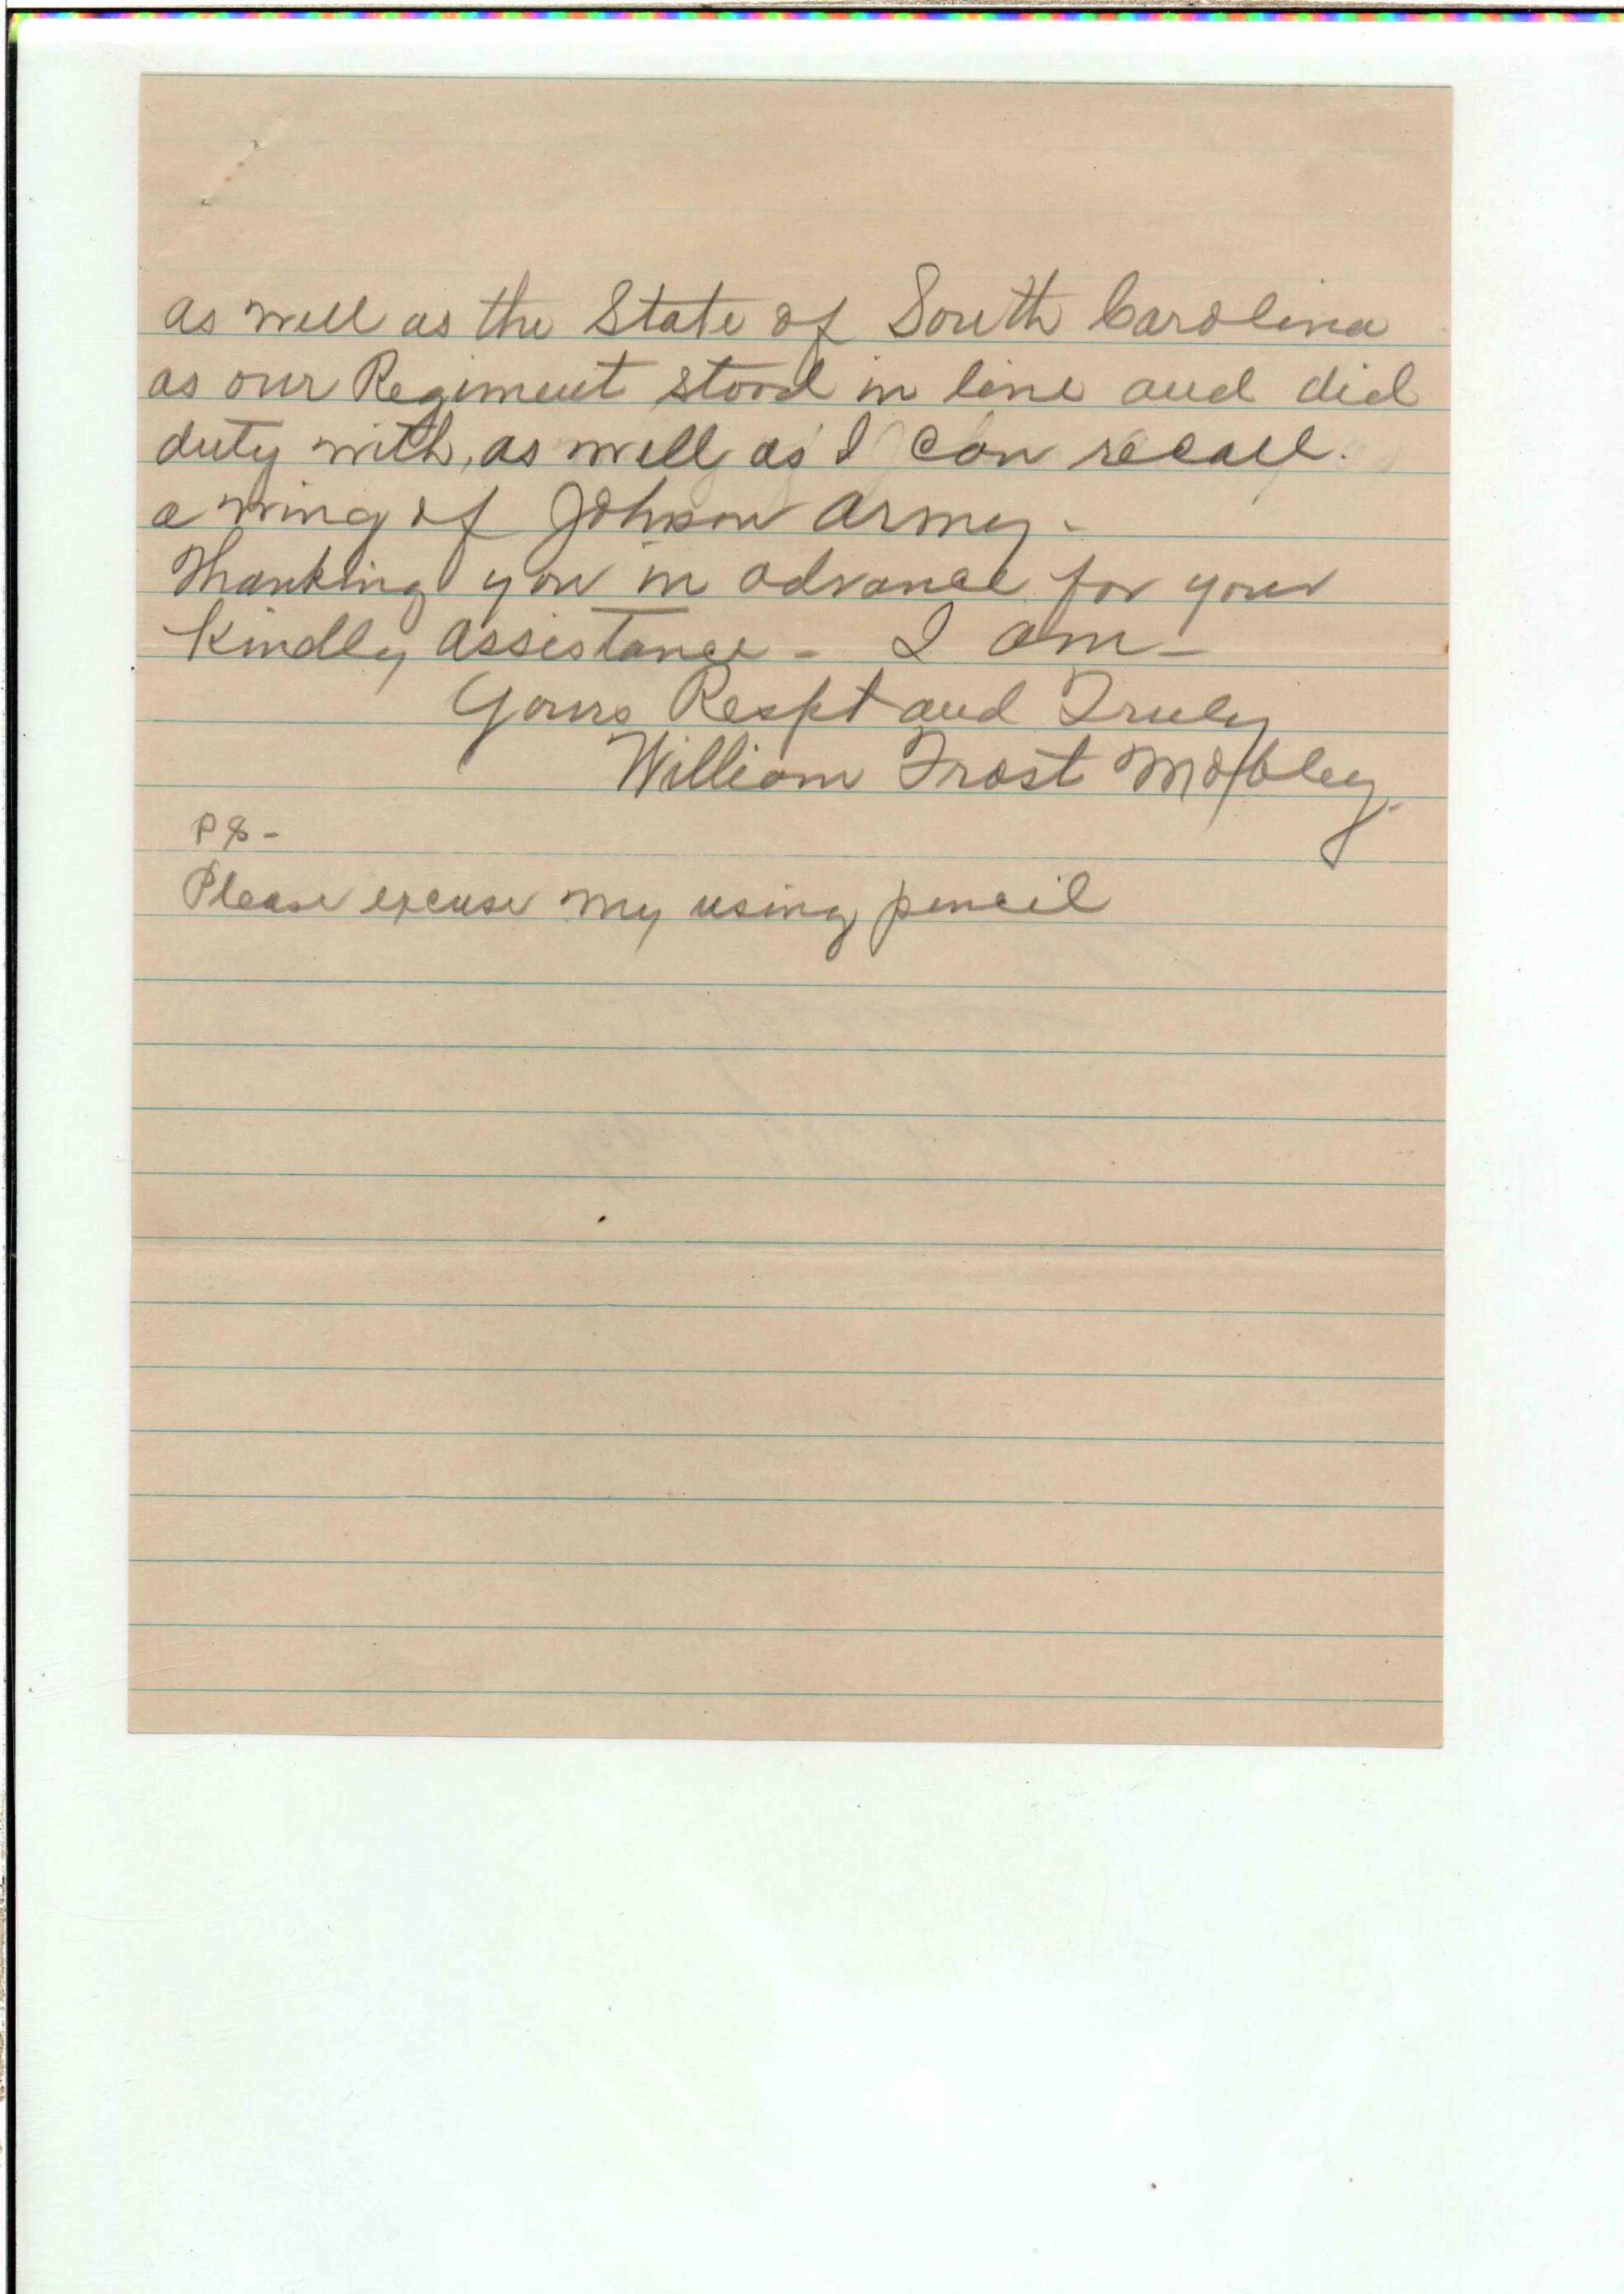 as well as the State of South Carolina
as our Regiment stood in line and did
duty with, as well as I can recall.
a wing of Johnson army -
Thanking you in advance for your
kindly assistance - I am -
Yours Respt and Truly
William Frost Mobley.
PS -
Please excuse my using pencil